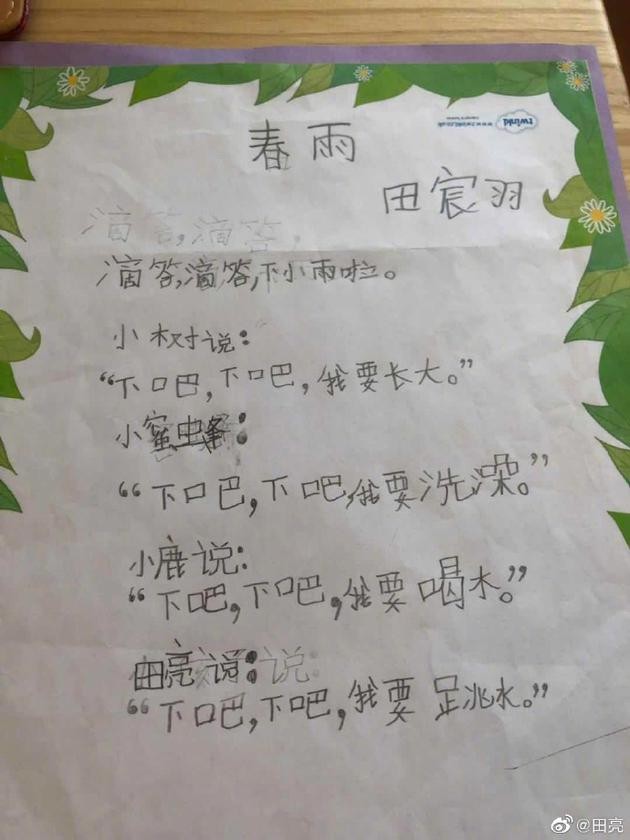 春雨
twinkl
www.twinkl.co.uk
田宸羽
滴答,滴答,
滴答,滴答,下小雨啦。
小树说:
“下吧,下吧,我要长大。”
小蜜蜂:
“下吧,下吧,我要洗澡。”
小鹿说:
“下吧,下吧,我要喝水。”
田亮说:说:
“下吧,下吧,我要跳水。”
@田亮